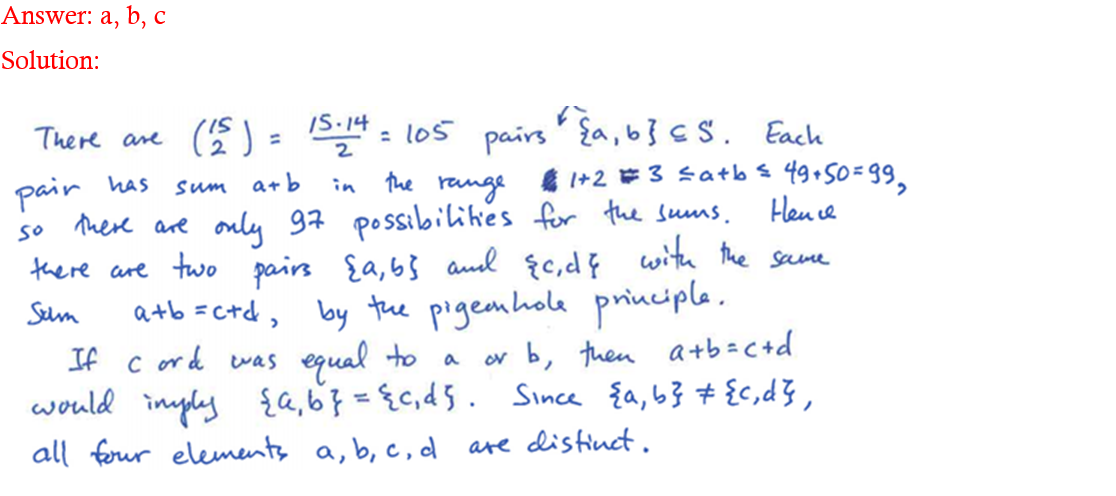 Answer: a, b, c
Solution:
There are (15 2) = 15·14/2 = 105 pairs {a,b} ⊆ S. Each
pair has sum a+b in the range 1+2 = 3 ≤ a+b ≤ 49+50=99,
so there are only 97 possibilities for the sums. Hence
there are two pairs {a,b} and {c,d} with the same
sum a+b = c+d, by the pigeonhole principle.
If c or d was equal to a or b, then a+b=c+d
would imply {a,b} = {c,d}. Since {a,b} ≠ {c,d},
all four elements a, b, c, d are distinct.